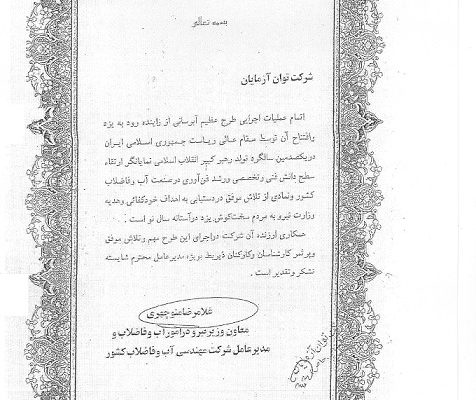 بسمه تعالی
شرکت توان آزمایان
اتمام عملیات اجرایی طرح عظیم آبرسانی از زاینده رود به یزد
وافتتاح آن توسط مقام عالی ریاست جمهوری اسلامی ایران
دریکصدمین سالگرد تولد رهبر کبیر انقلاب اسلامی نمایانگر ارتقاء
سطح دانش فنی وتخصصی ورشد فن‌آوری درصنعت آب وفاضلاب
کشور ونمادی از تلاش موفق دردستیابی به اهداف خودکفائی وهدیه
وزارت نیرو به مردم سخت‌کوش یزد درآستانه سال نو است .
همکاری ارزنده آن شرکت دراجرای این طرح مهم وتلاش موفق
وپرثمر کارشناسان وکارکنان ذیربط بویژه مدیرعامل محترم شایسته
تشکر وتقدیر است .
غلامرضا منوچهری
معاون وزیر نیرو درامور آب وفاضلاب و
مدیرعامل شرکت مهندسی آب وفاضلاب کشور
توان آزمایان